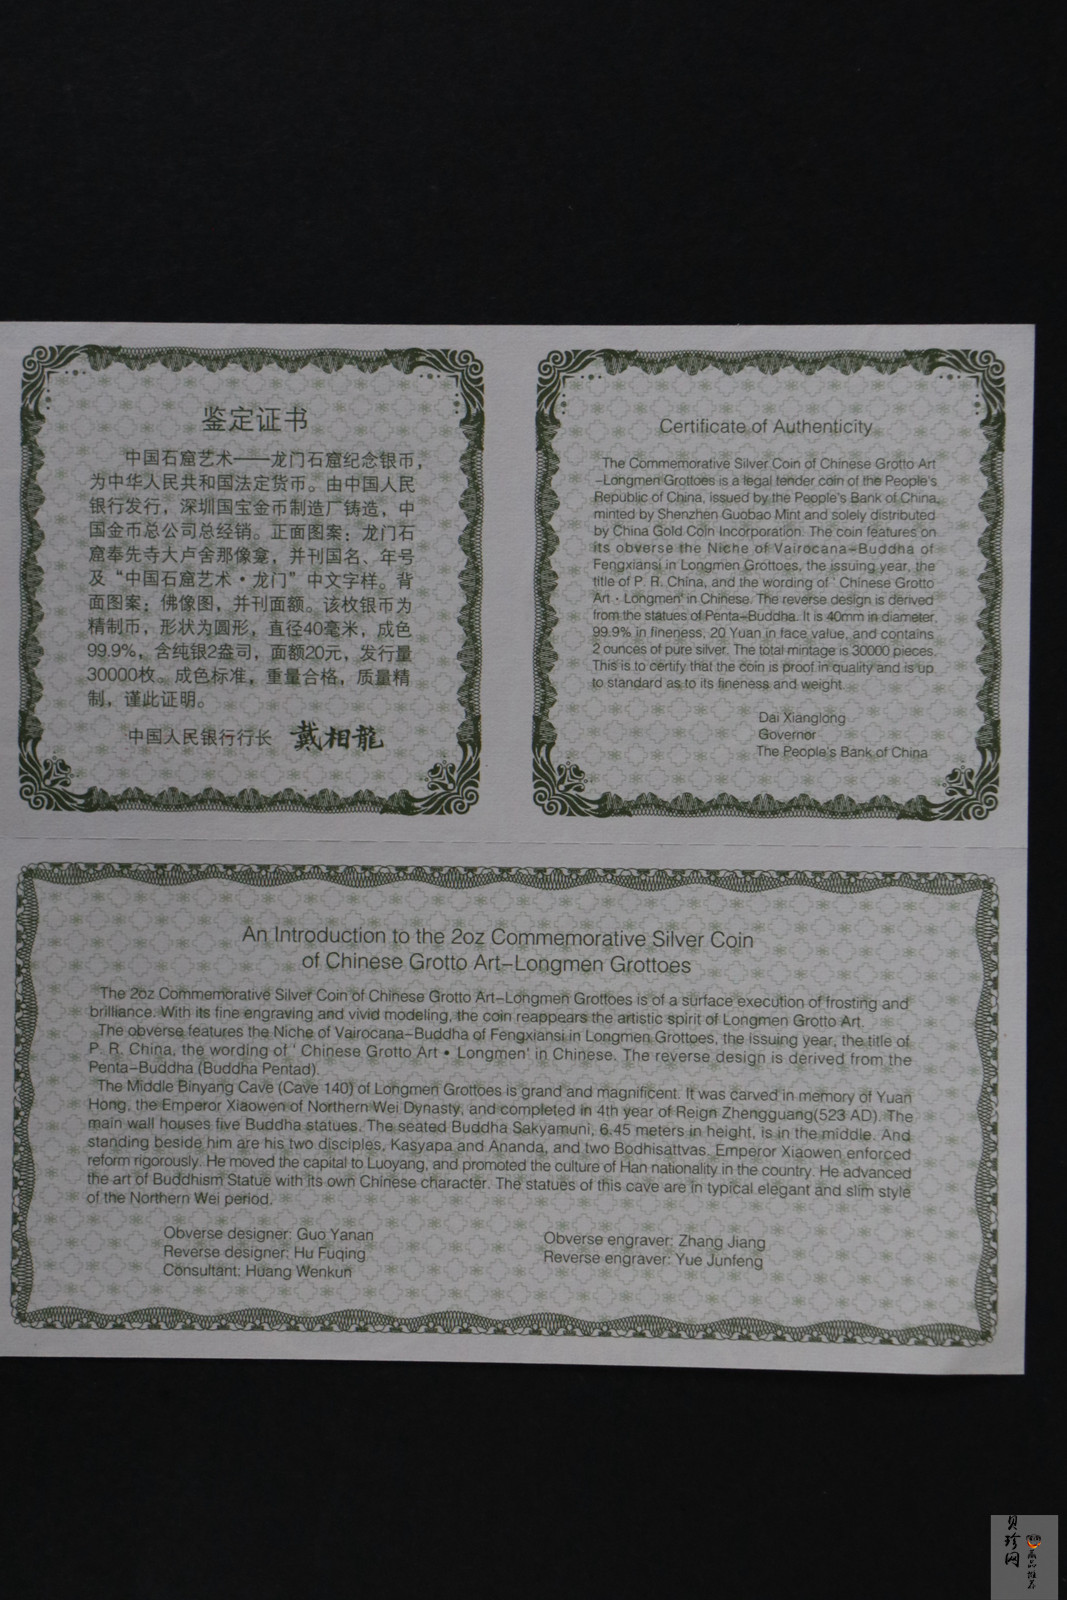 鉴定证书
中国石窟艺术——龙门石窟纪念银币，
为中华人民共和国法定货币。由中国人民
银行发行，深圳国宝金币制造厂铸造，中
国金币总公司总经销。正面图案：龙门石
窟奉先寺大卢舍那像龛，并刊国名、年号
及“中国石窟艺术·龙门”中文字样。背
面图案：佛像图，并刊面额。该枚银币为
精制币，形状为圆形，直径40毫米，成色
99.9%，含纯银2盎司，面额20元，发行量
30000枚。成色标准，重量合格，质量精
制，谨此证明。
中国人民银行行长 戴相龍
Certificate of Authenticity
The Commemorative Silver Coin of Chinese Grotto Art
-Longmen Grottoes is a legal tender coin of the People's
Republic of China, issued by the People's Bank of China,
minted by Shenzhen Guobao Mint and solely distributed
by China Gold Coin Incorporation. The coin features on
its obverse the Niche of Vairocana-Buddha of
Fengxiansi in Longmen Grottoes, the issuing year, the
title of P. R. China, and the wording of ' Chinese Grotto
Art · Longmen' in Chinese. The reverse design is derived
from the statues of Penta-Buddha. It is 40mm in diameter,
99.9% in fineness, 20 Yuan in face value, and contains
2 ounces of pure silver. The total mintage is 30000 pieces.
This is to certify that the coin is proof in quality and is up
to standard as to its fineness and weight.
Dai Xianglong
Governor
The People's Bank of China
An Introduction to the 2oz Commemorative Silver Coin
of Chinese Grotto Art-Longmen Grottoes
The 2oz Commemorative Silver Coin of Chinese Grotto Art-Longmen Grottoes is of a surface execution of frosting and
brilliance. With its fine engraving and vivid modeling, the coin reappears the artistic spirit of Longmen Grotto Art.
The obverse features the Niche of Vairocana-Buddha of Fengxiansi in Longmen Grottoes, the issuing year, the title of
P. R. China, the wording of ' Chinese Grotto Art • Longmen' in Chinese. The reverse design is derived from the
Penta-Buddha (Buddha Pentad).
The Middle Binyang Cave (Cave 140) of Longmen Grottoes is grand and magnificent. It was carved in memory of Yuan
Hong, the Emperor Xiaowen of Northern Wei Dynasty, and completed in 4th year of Reign Zhengguang(523 AD). The
main wall houses five Buddha statues. The seated Buddha Sakyamuni, 6.45 meters in height, is in the middle. And
standing beside him are his two disciples, Kasyapa and Ananda, and two Bodhisattvas. Emperor Xiaowen enforced
reform rigorously. He moved the capital to Luoyang, and promoted the culture of Han nationality in the country. He advanced
the art of Buddhism Statue with its own Chinese character. The statues of this cave are in typical elegant and slim style
of the Northern Wei period.
Obverse designer: Guo Yanan
Reverse designer: Hu Fuqing
Consultant: Huang Wenkun
Obverse engraver: Zhang Jiang
Reverse engraver: Yue Junfeng
贝珍网
藏品推荐